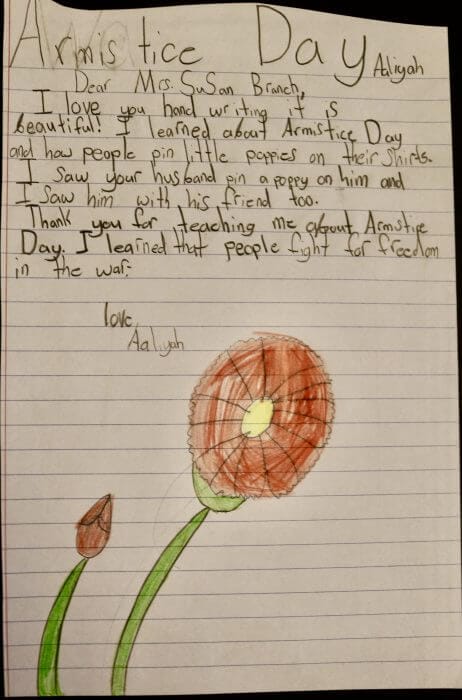 Armistice Day Aaliyah
Dear Mrs. SuSan Branch,
I love you hand writing it is
beautiful! I learned about Armistice Day
and how people pin little poppies on their shirts.
I saw your husband pin a poppy on him and
I saw him with his friend too.
Thank you for teaching me about Armstice
Day. I learned that people fight for freedom
in the war.
love,
Aaliyah